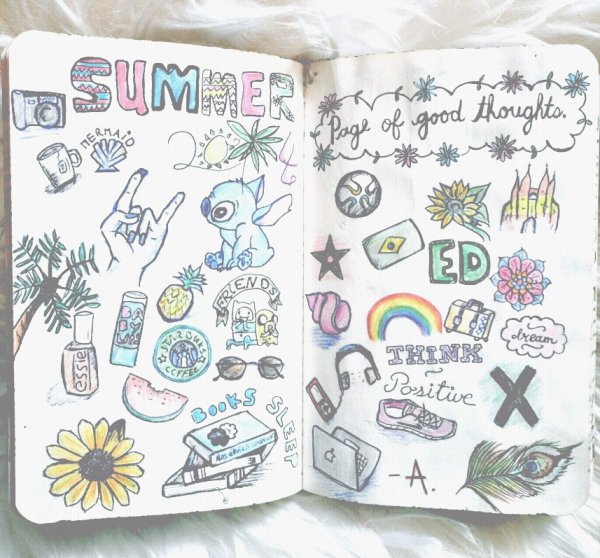 SUMMER
MERMAID
FRIENDS
BABY
LIPS
essie
COFFEE
BOOKS
SLEEP
Page of good thoughts.
ED
dream
THINK
~
Positive
X
-A.